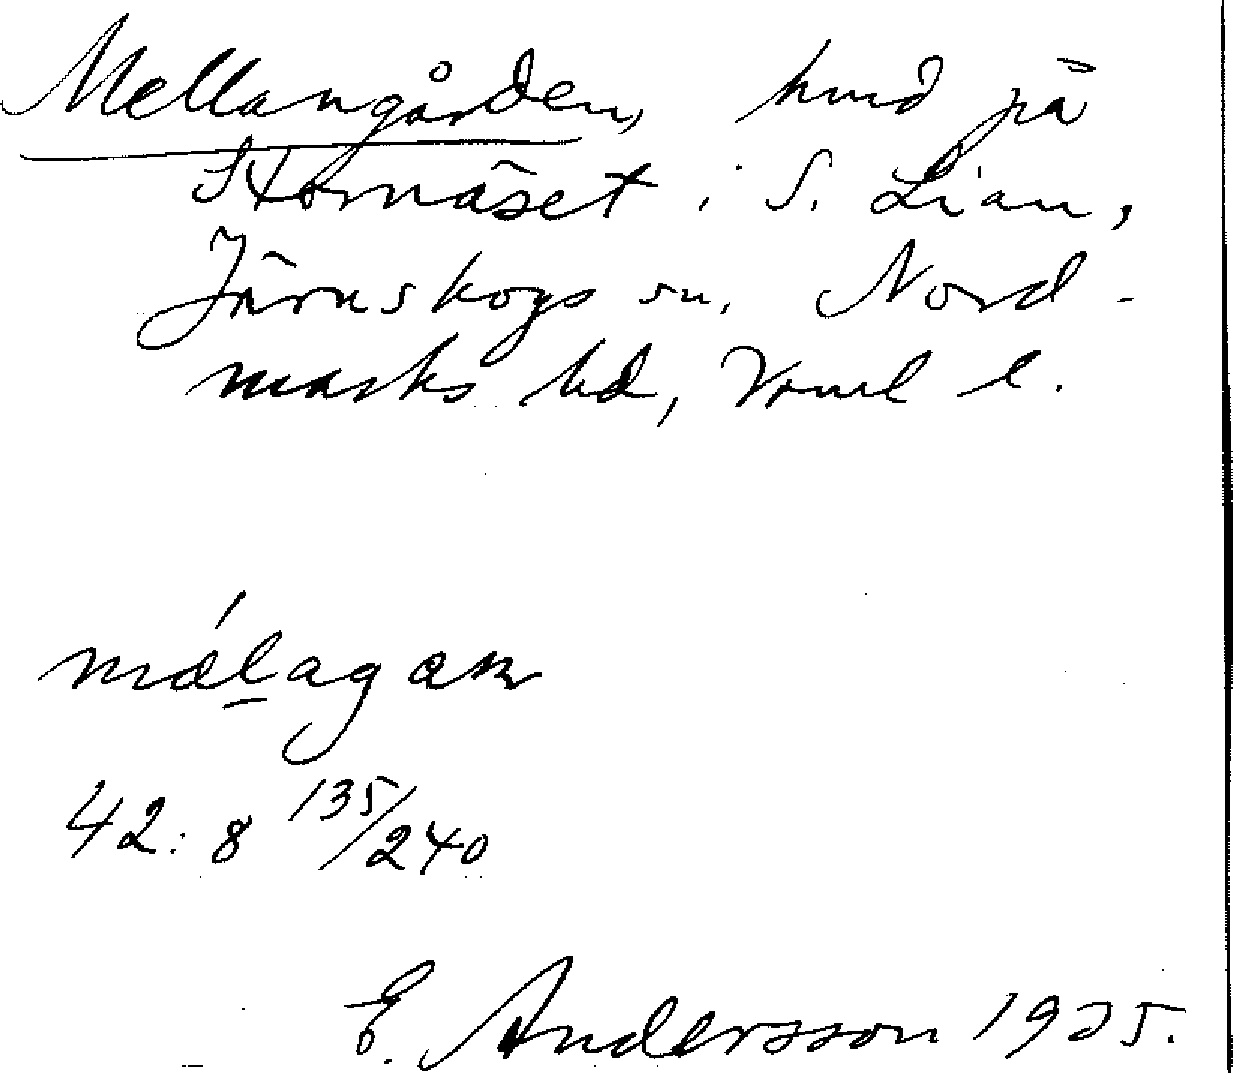 Mellangården, hmd på
Stornäset i S. Lian,
Järnskogs sn. Nord-
marks hd, Vrml l.
málagaɳ
42: 8 135/240
E. Andersson 1925.